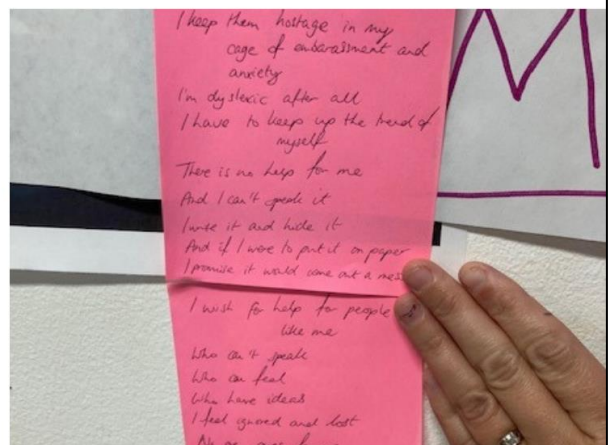 I keep them hostage in my
cage of embarassment and
anxiety
I'm dyslexic after all
I have to keep up the trend of
myself
There is no help for me
And I can't speak it
I write it and hide it
And if I were to put it on paper
I promise it would come out a mess
I wish for help for people
like me
Who can't speak
Who can feel
Who have ideas
I feel ignored and lost